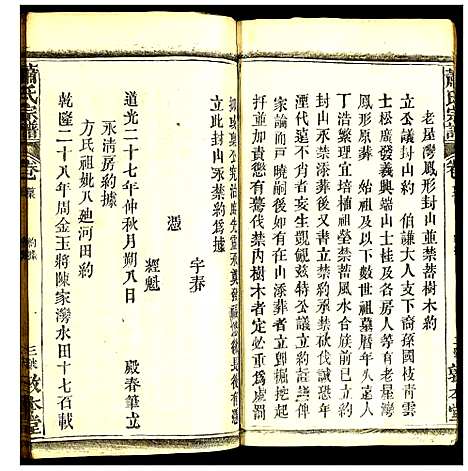 蕭氏宗譜
卷
三
敦本堂
老屋灣鳳形封山並禁蓄樹木約
立公議封山約 伯謙大人支下裔孫國枝青雲
士松廣發義興端山士桂及各房人等有老屋灣
鳳形原葬 世祖及以下數世祖墓曆年久遠
丁浩繁理宜培植朝榮蓄風水合族前已立約
封山永禁以後又立禁示不准入山砍伐誠恐年
湮代遠不肖者妄生覬覦茲特合族立約
家論而戶曉嗣後如有在山添葬者立即掘起
扦並加責懲有竊伐禁內樹木者定必重為處罰
如敢
立此封山永禁約為據
憑 宇春 經魁
道光二十七年仲秋月朔八日 殿春筆立
永清房約據
方氏祖妣八廸河田約
乾隆二十八年周金玉將陳家灣水田十七石載
蕭氏宗譜
卷
約據
三
敦本堂